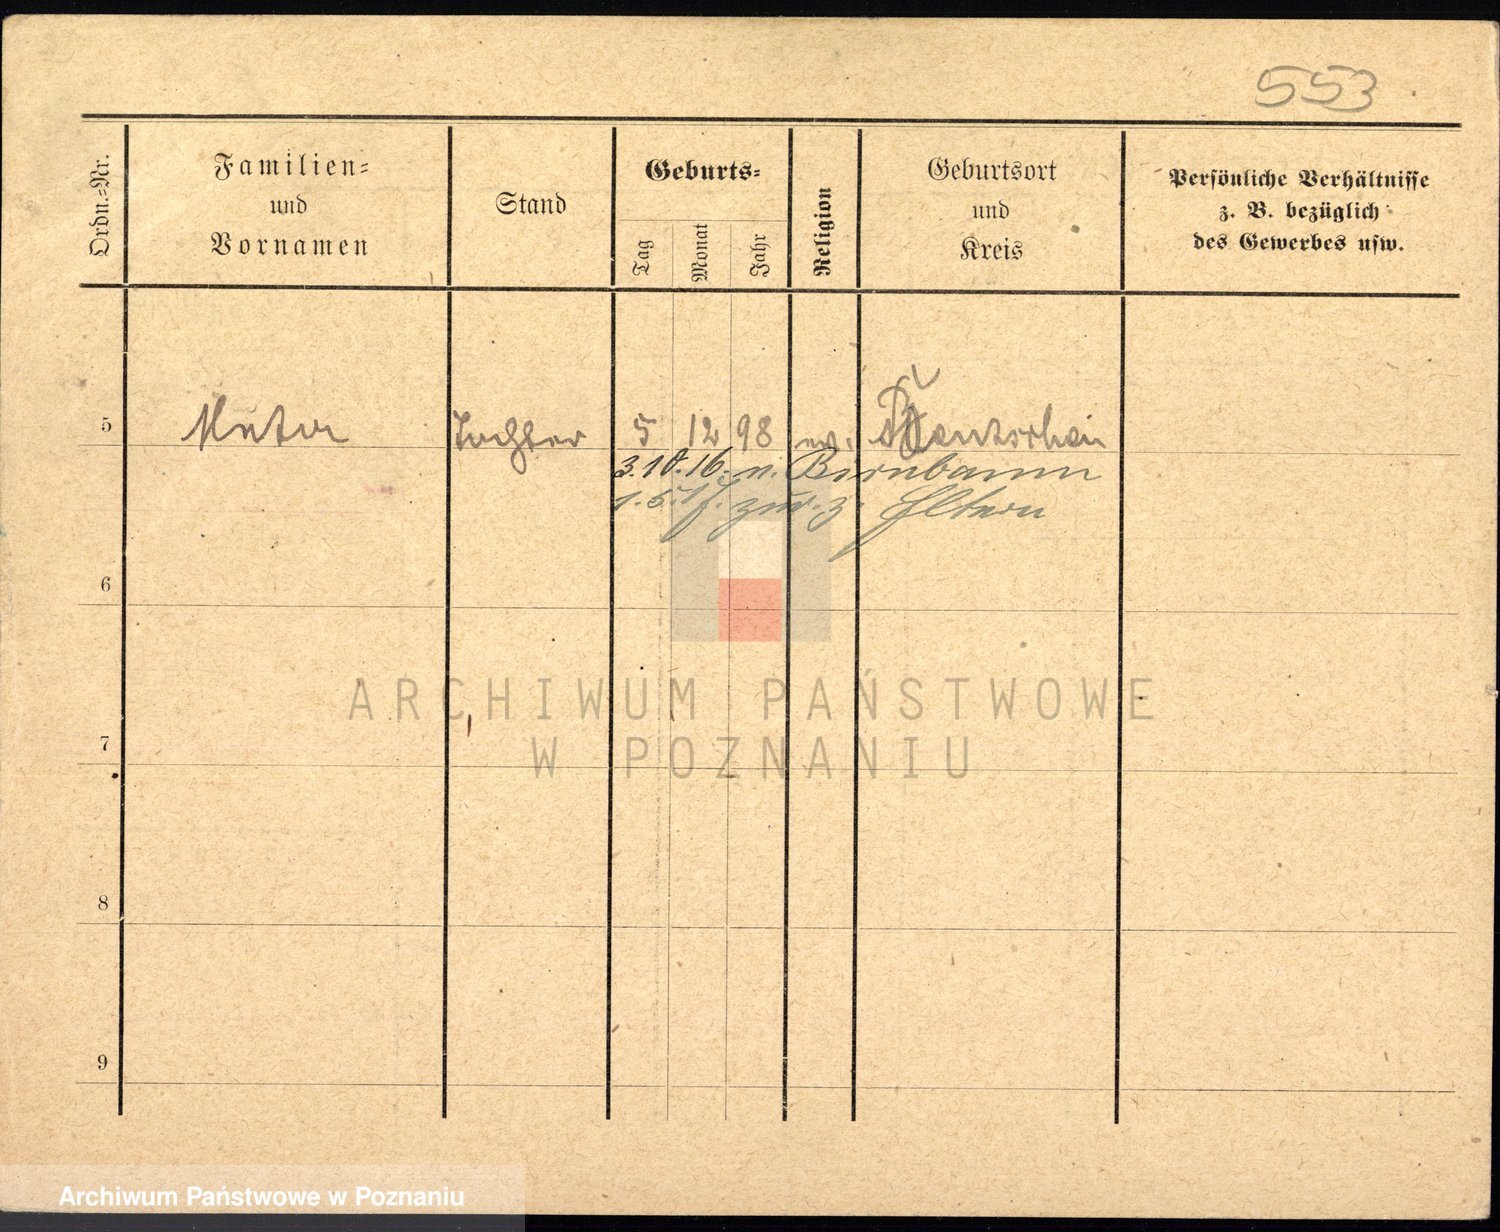 553
Ordn.=Nr.
Familien=
und
Vornamen
Stand
Geburts=
Tag
Monat
Jahr
Religion
Geburtsort
und
Kreis
Persönliche Verhältnisse
z. B. bezüglich
des Gewerbes usw.
5 Tochter 5 12 98 ev.
3.10.16. n. Birnbaum
1.5.17. zur. z. Eltern
6
7
8
9
ARCHIWUM PAŃSTWOWE
W POZNANIU
Archiwum Państwowe w Poznaniu